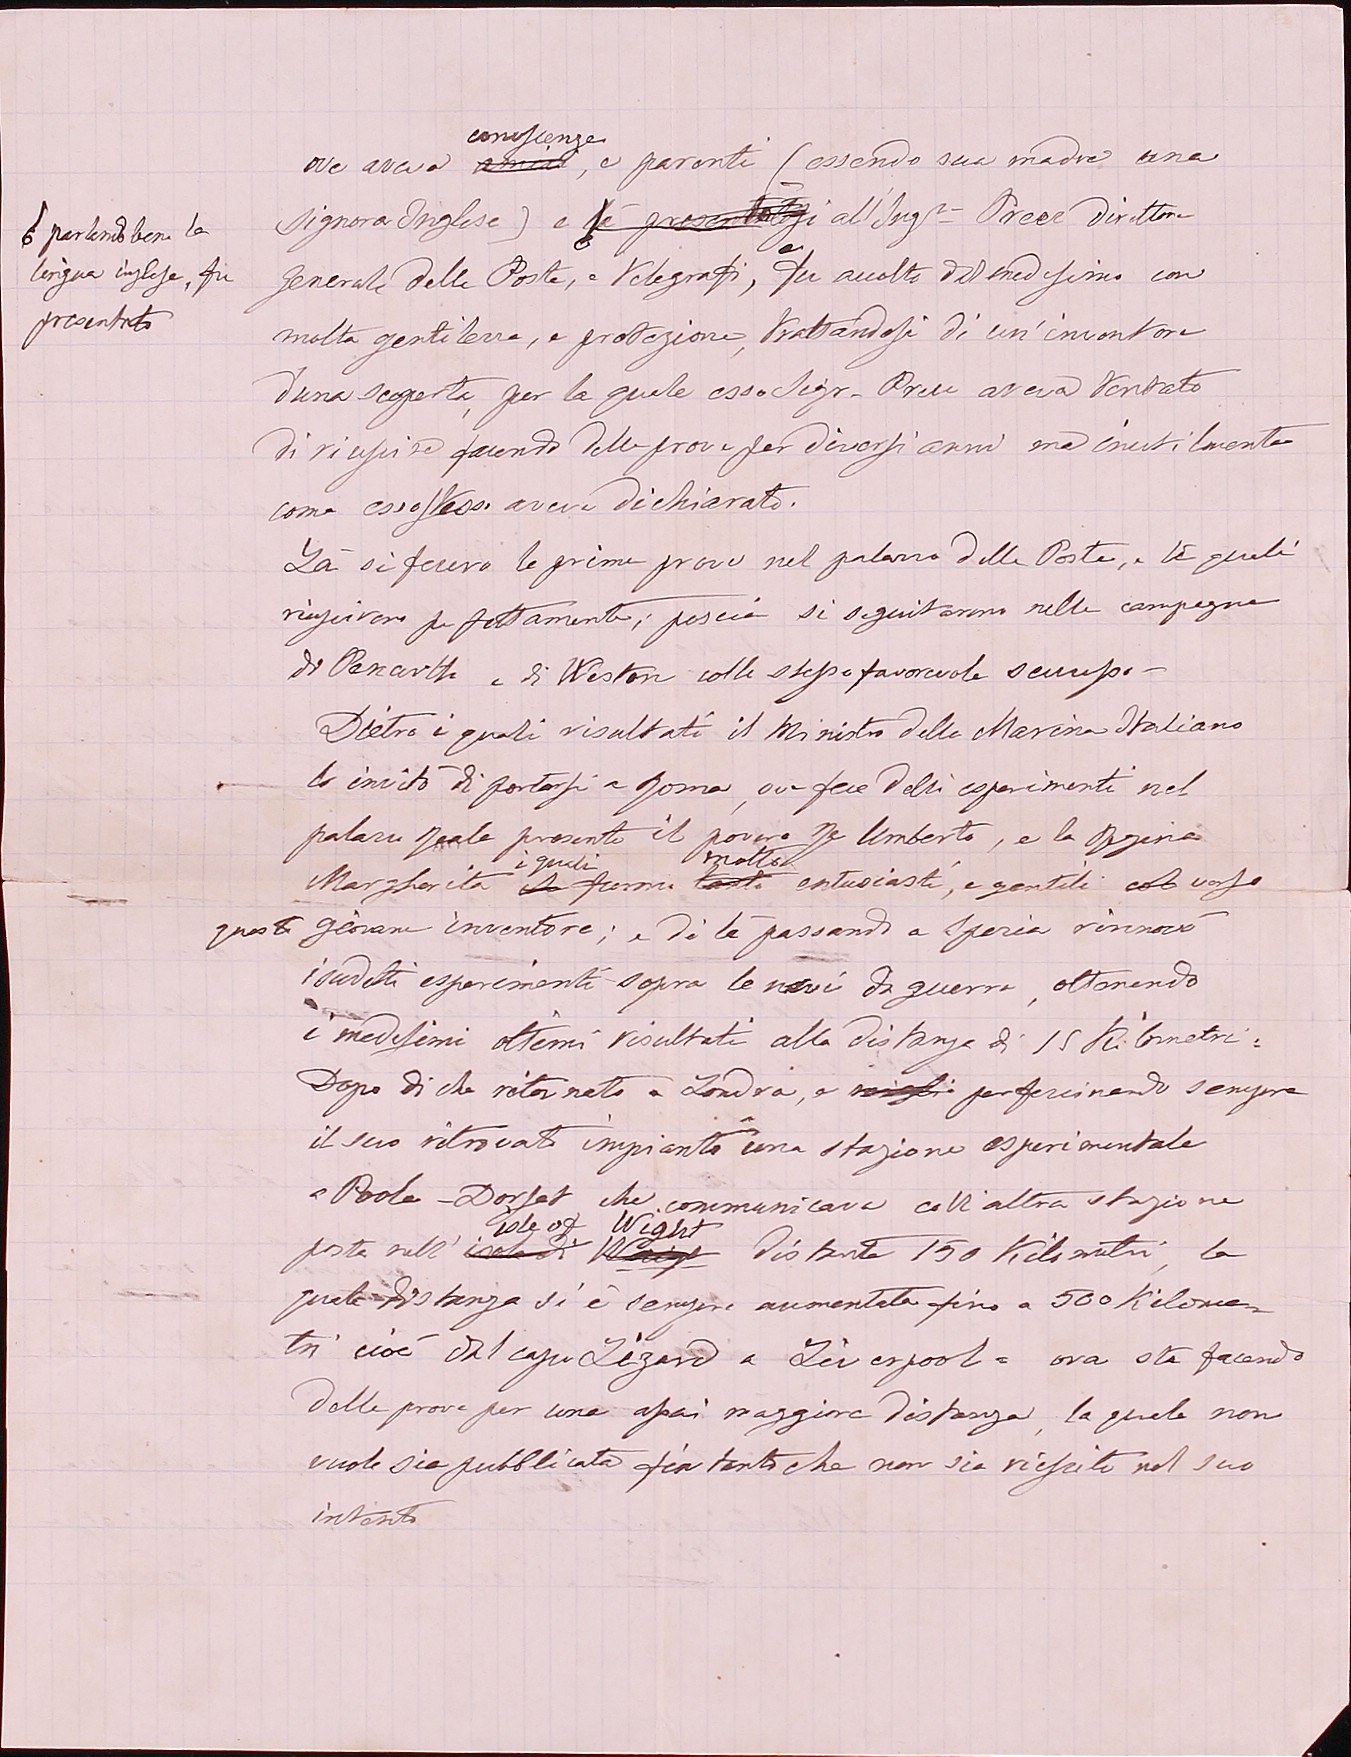 conoscenze
ove aveva amici, e parenti (essendo sua madre una
signora Inglese) e fè presentatosi all'Ingre Preece direttore
e parlando bene la
lingua inglese, fu
presentato
generale delle Poste, e Telegrafi, e fu accolto dal medesimo con
molta gentilezza, e protezione, trattandosi di un'inventore
d'una scoperta, per la quale esso Sigr. Preece aveva tentato
di riuscire facendo delle prove per diversi anni ma inutilmente
come esso stesso aveva dichiarato.
Là si fecero le prime prove nel palazzo delle Poste, e le quali
riuscirono perfettamente; poscia si seguitarono nelle campagne
di Penarth e di Weston colle stesso favorevole successo
Dietro i quali risultati il Ministro della Marina Italiano
lo invitò di portarsi a Roma, ove fece delli esperimenti nel
palazzo Reale presente il povero Re Umberto, e la Regina
i quali molto
Margherita che furono tanto entusiasti, e gentili col verso
questo giovane inventore; e di là passando a Spezia rinnovò
i sudetti esperimenti sopra le navi da guerra, ottenendo
i medesimi ottimi risultati alla distanza di 15 Kilometri.
Dopo di che ritornato a Londra, e perfezionando sempre
il suo ritrovato impiantò una stazione esperimentale
a Poole-Dorset che communicava coll'altra stazione
Isle of Wight
posta nell' isola di distante 150 Kilometri, la
quale distanza si è sempre aumentata fino a 500 Kilome-
tri cioè dal capo Lizard a Liverpool = ora sta facendo
delle prove per una assai maggiore distanza, la quale non
vuole sia pubblicata fin tanto che non sia riescito nel suo
intento